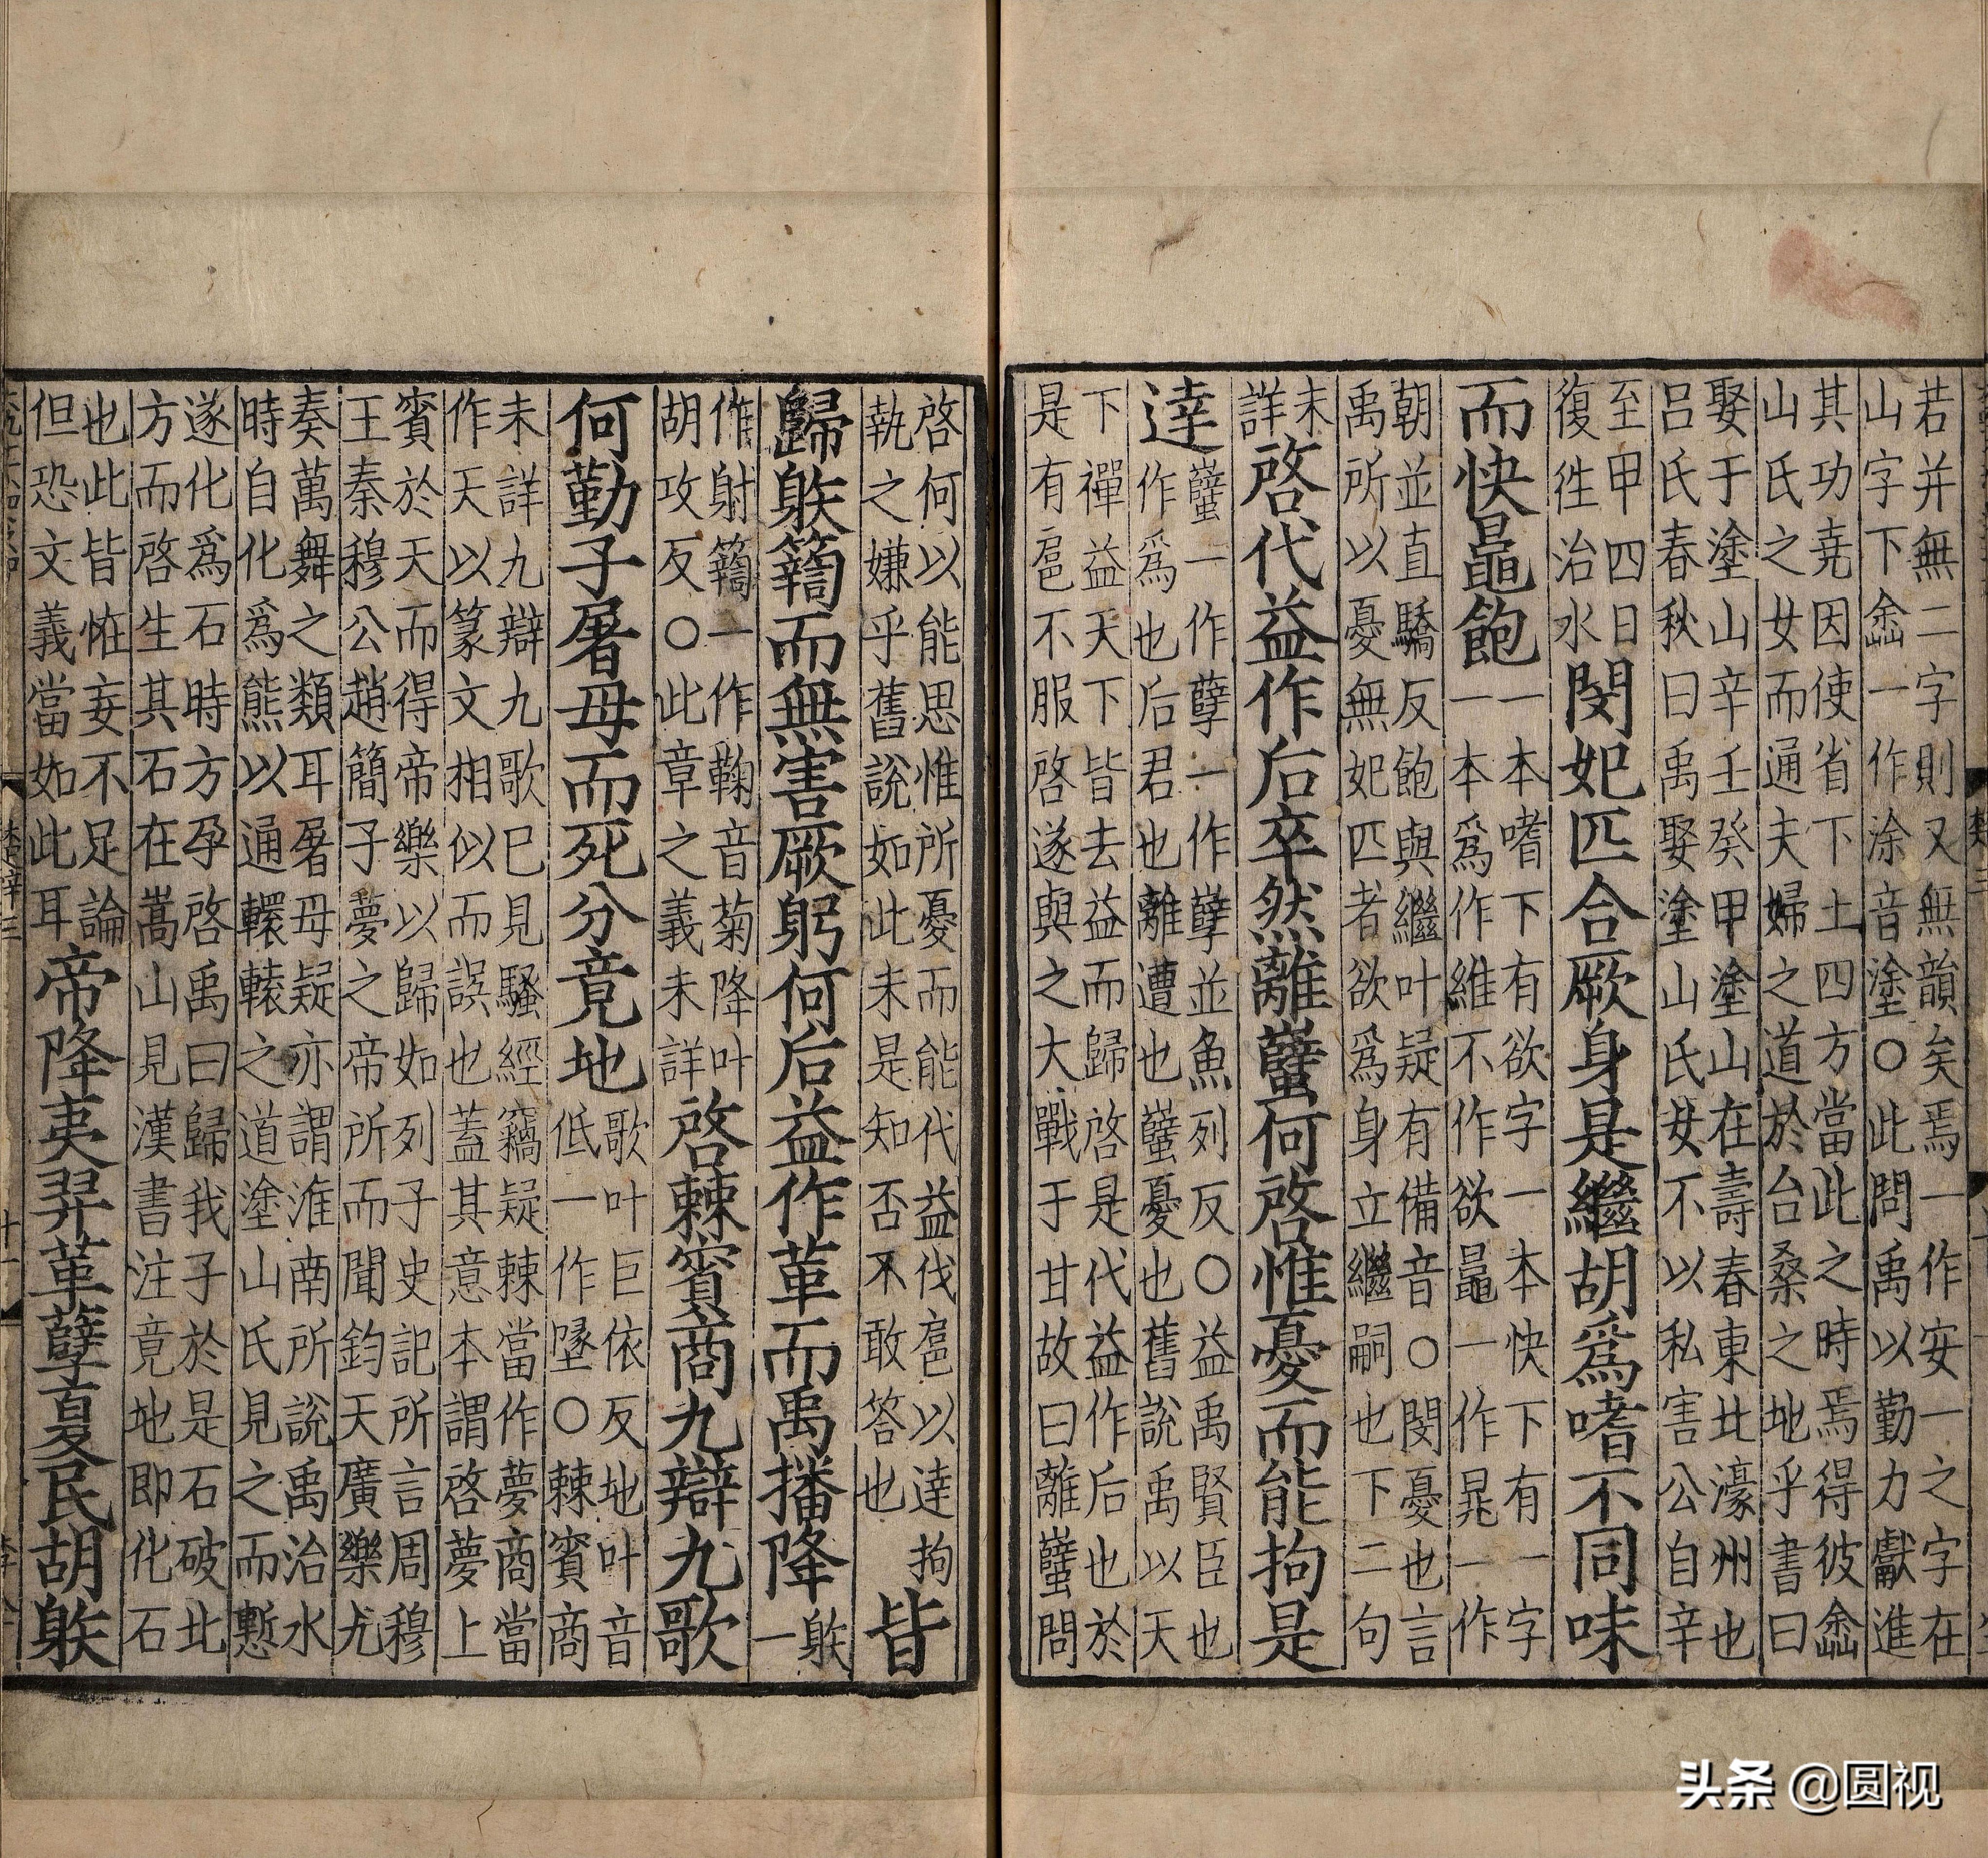 若并無二字則又無韻矣焉一作安一之字在
山字下嵞一作涂音塗○此問禹以勤力獻進
其功堯因使省下土四方當此之時焉得彼嵞
山氏之女而通夫婦之道於台桑之地乎書曰
娶于塗山辛壬癸甲塗山在壽春東北濠州也
呂氏春秋曰禹娶塗山氏女不以私害公自辛
至甲四日
復往治水
閔妃匹合厥身是繼胡爲嗜不同味
而快鼂飽
一本嗜下有欲字一本快下有一字
一本爲作維不作欲鼂一作晁一作
朝並直驕反飽與繼叶疑有備音○閔憂也言
禹所以憂無妃匹者欲爲身立繼嗣也下二句
未
詳
啓代益作后卒然離蠥何啓惟憂而能拘是
達
蠥一作孽一作孼並魚列反○益禹賢臣也
作爲也后君也離遭也蠥憂也舊說禹以天
下禪益天下皆去益而歸啓是代益作后也於
是有扈不服啓遂與之大戰于甘故曰離蠥問
啓何以能思惟所憂而能代益伐扈以達拘
執之嫌乎舊說如此未是知否不敢答也
皆
歸䠶𥷚而無害厥躬何后益作革而禹播降
䠶
一
作射𥷚一作鞠音菊降叶
胡攻反○此章之義未詳
啓棘賓商九辯九歌
何勤子屠母而死分竟地
歌叶巨依反地叶音
低一作墬○棘賓商
未詳九辯九歌已見騷經竊疑棘當作夢商當
作天以篆文相似而誤也蓋其意本謂啓夢上
賓於天而得帝樂以歸如列子史記所言周穆
王秦穆公趙簡子夢之帝所而聞鈞天廣樂尤
奏萬舞之類耳屠母疑亦謂淮南所說禹治水
時自化爲熊以通轘轅之道塗山氏見之而慙
遂化爲石時方孕啓禹曰歸我子於是石破北
方而啓生其石在嵩山見漢書注竟地即化石
也此皆恠妄不足論
但恐文義當如此耳
帝降夷羿革孽夏民胡䠶
头条 @圆视